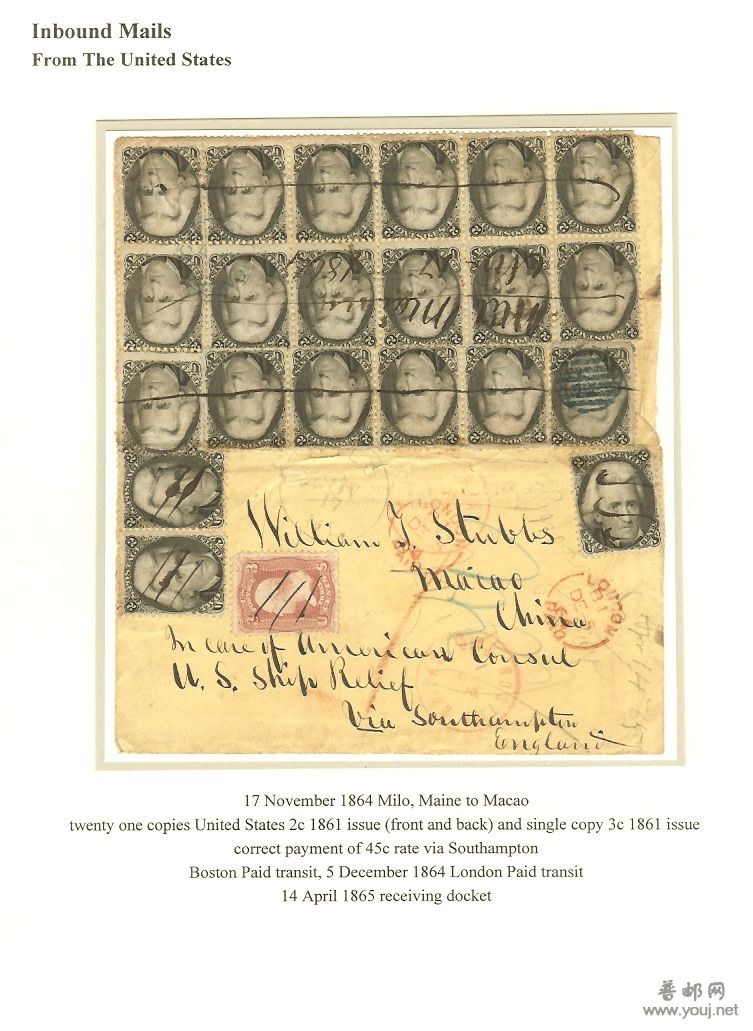 Inbound Mails
From The United States
William J Stubbs
Macao
China
In care of American Consul
U. S. Ship Relief
Via Southampton
England
LONDON
PAID
17 November 1864 Milo, Maine to Macao
twenty one copies United States 2c 1861 issue (front and back) and single copy 3c 1861 issue
correct payment of 45c rate via Southampton
Boston Paid transit, 5 December 1864 London Paid transit
14 April 1865 receiving docket
普邮网
www.youj.net